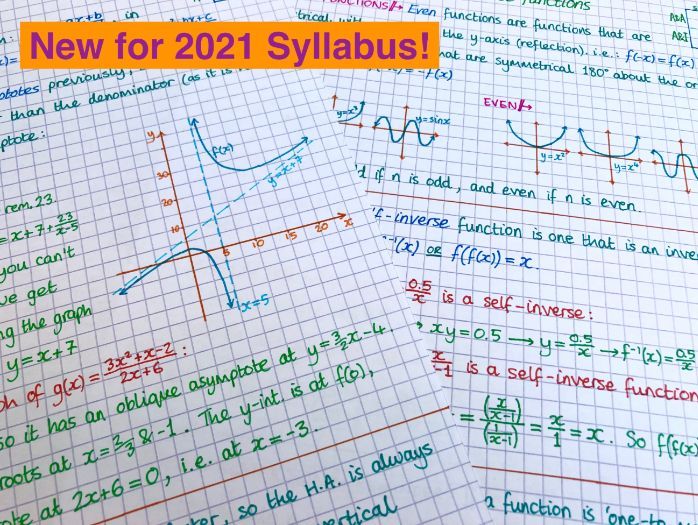 New for 2021 Syllabus!
in
previously,
than the denominator (as it is
ptote:
f(x)
y
30
20
10
5
10
15
20
x
y=x+7
x=5
rem. 23.
=x+7+23/x-5
you can't
ve get
ng the graph
y=x+7
ph of g(x) = 3x²+x-2/2x+6 :
so it has an oblique asymptote at y=3/2x-4.
roots at x=2/3 & -1. The y-int. is at f(0),
ote at 2x+6=0, i.e. at x=-3.
so the H.A. is always
vertical
Even functions are functions that are
the y-axis (reflection). i.e.: f(-x)=f(x)
hat are symmetrical 180° about the or
-f(x)
EVEN
y=x³
y=sinx
y=x²
y=x⁴
d if n is odd, and even if n is even.
f-inverse function is one that is an inve
⁻¹(x) OR f(f(x))=x.
0.5/x is a self-inverse:
xy=0.5 → y=0.5/x → f⁻¹(x)=0.5/x
x/-1 is a self-inverse function
= (x/x-1)/(1/x-1) = x/1 = x. So f(f(x)
a function is 'one-to